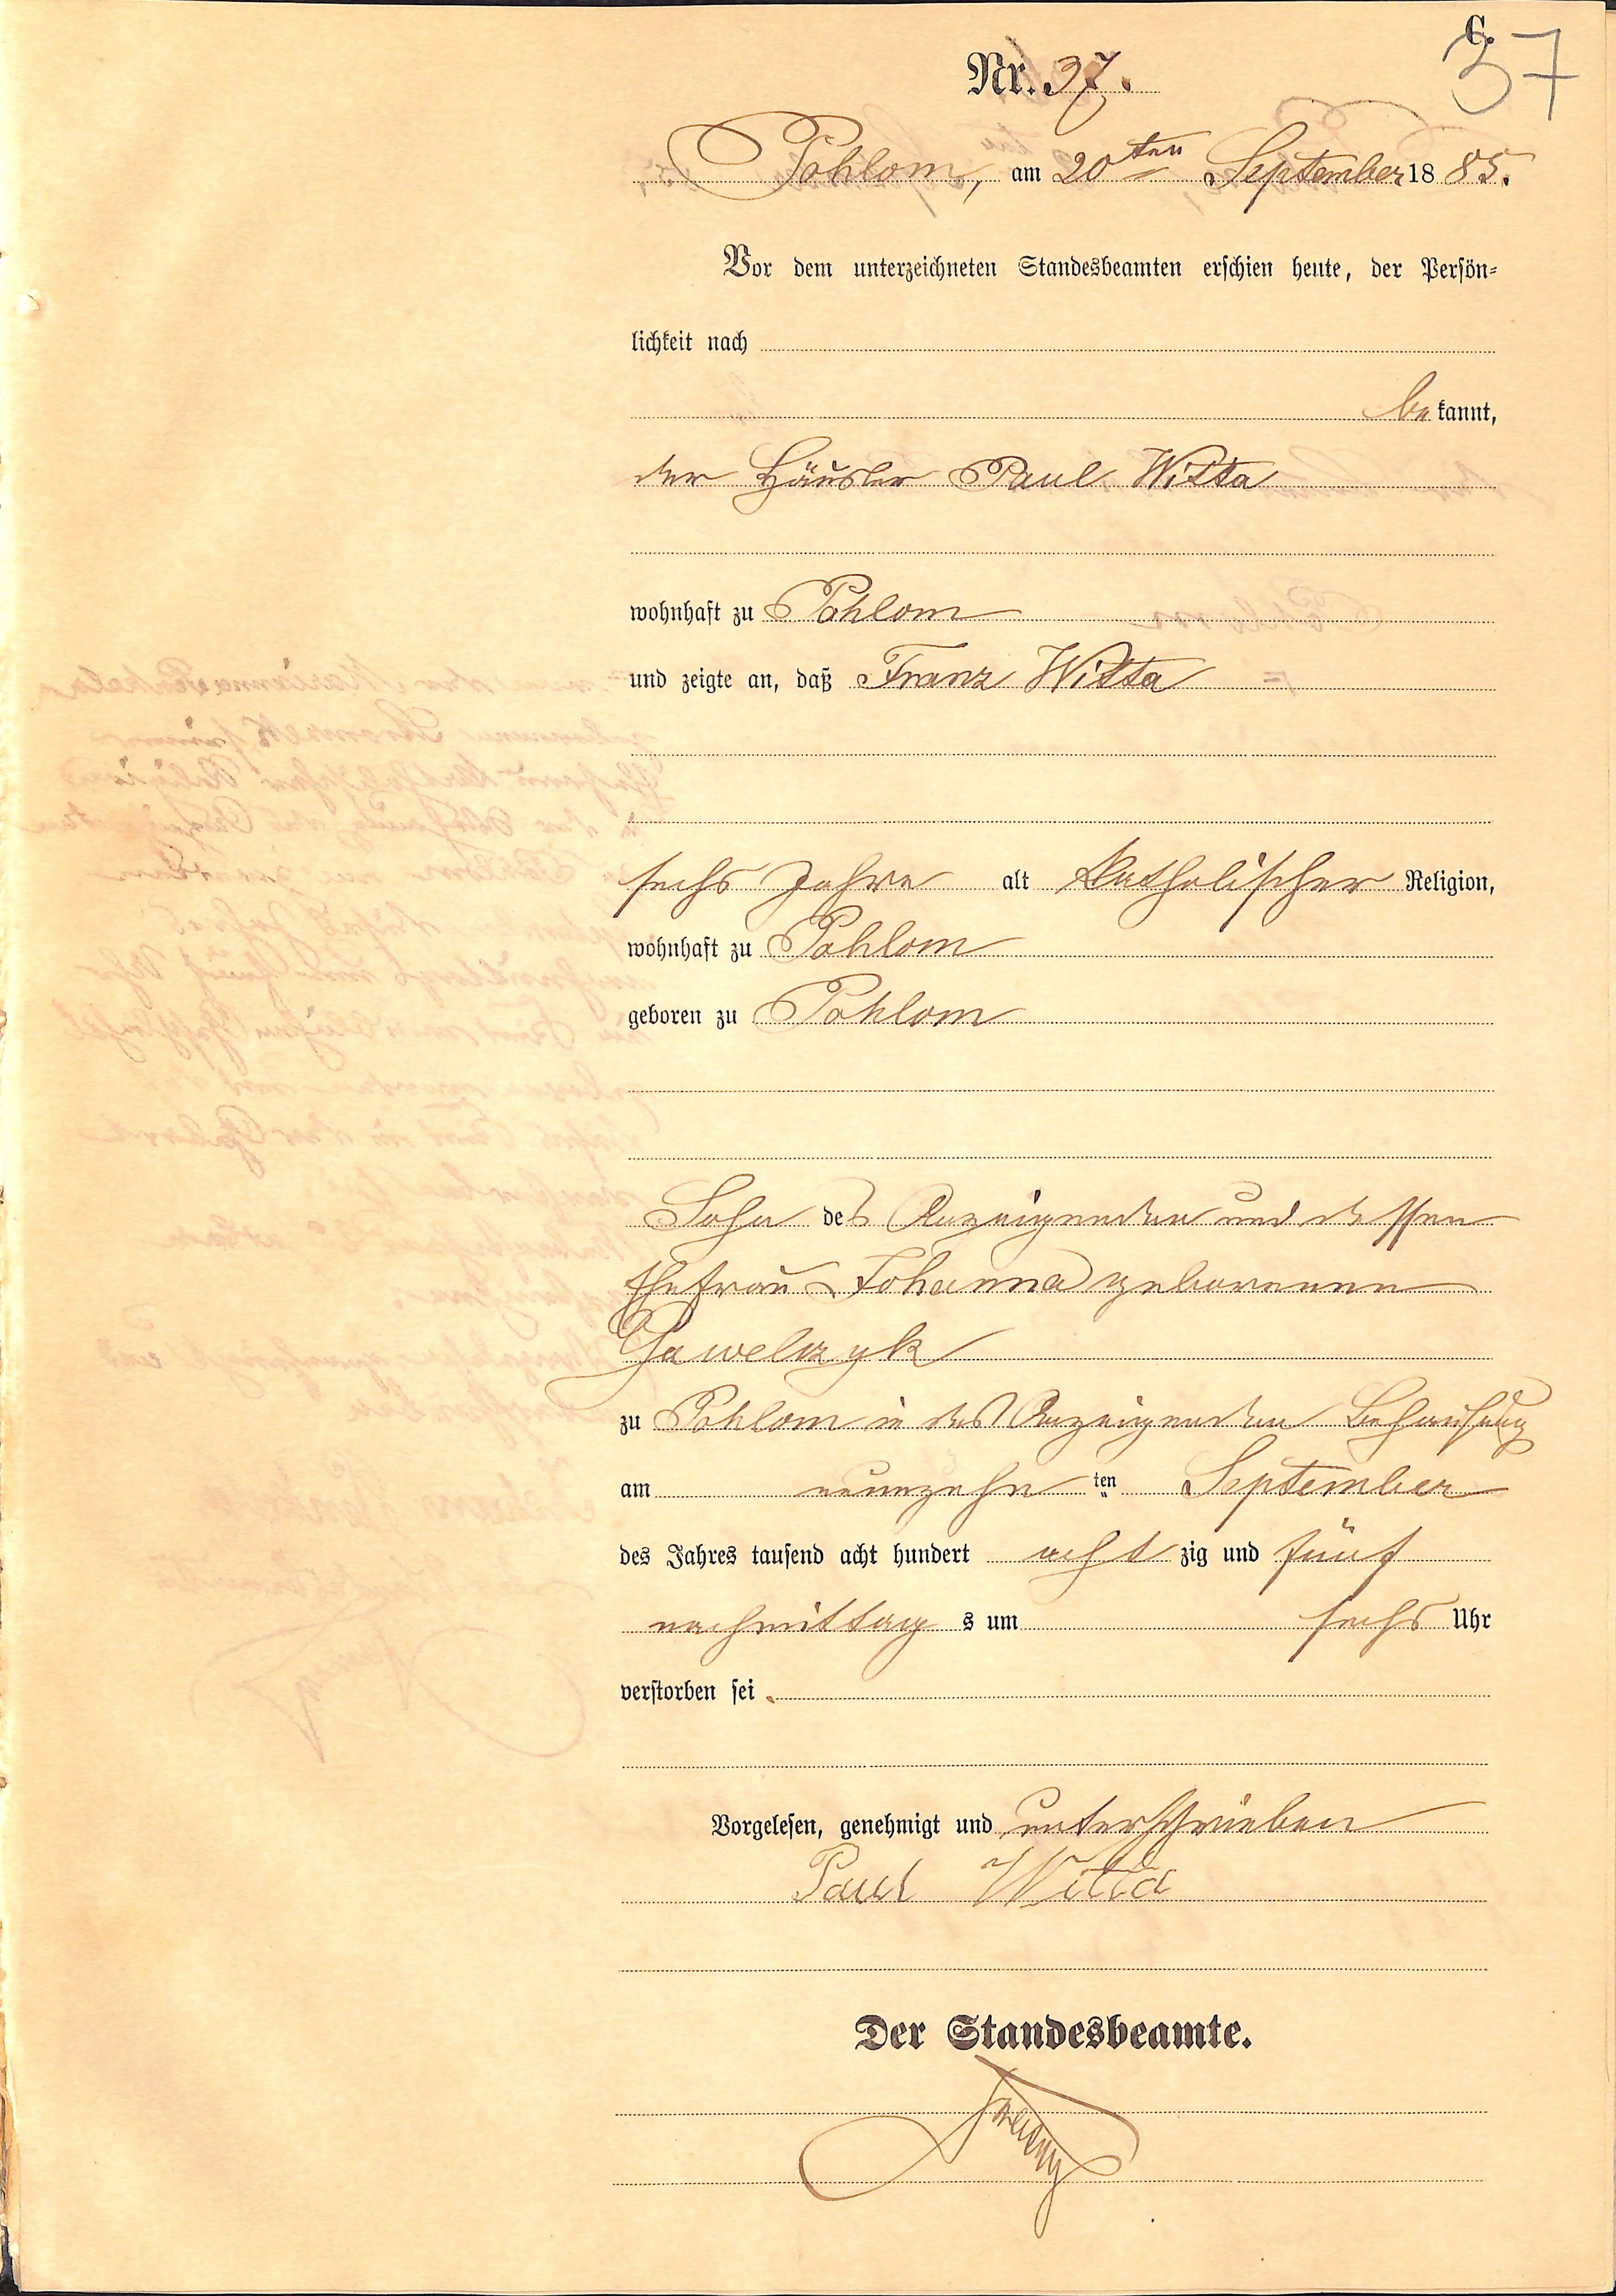 C.
37
Nr. 37.
Pohlom, am 20ten September 1885.
Vor dem unterzeichneten Standesbeamten erschien heute, der Persön-
lichkeit nach
bekannt,
der Häusler Paul Witta
wohnhaft zu Pohlom
und zeigte an, daß Franz Witta
sechs Jahre alt katholischer Religion,
wohnhaft zu Pohlom
geboren zu Pohlom
Sohn des Anzeigenden und dessen
Ehefrau Johanna geborenen
Gawelczyk
zu Pohlom in des Anzeigenden Behausung
am neunzehnten September
des Jahres tausend acht hundert achtzig und fünf
nachmittags um sechs Uhr
verstorben sei.
Vorgelesen, genehmigt und unterschrieben
Paul Witta
Der Standesbeamte.